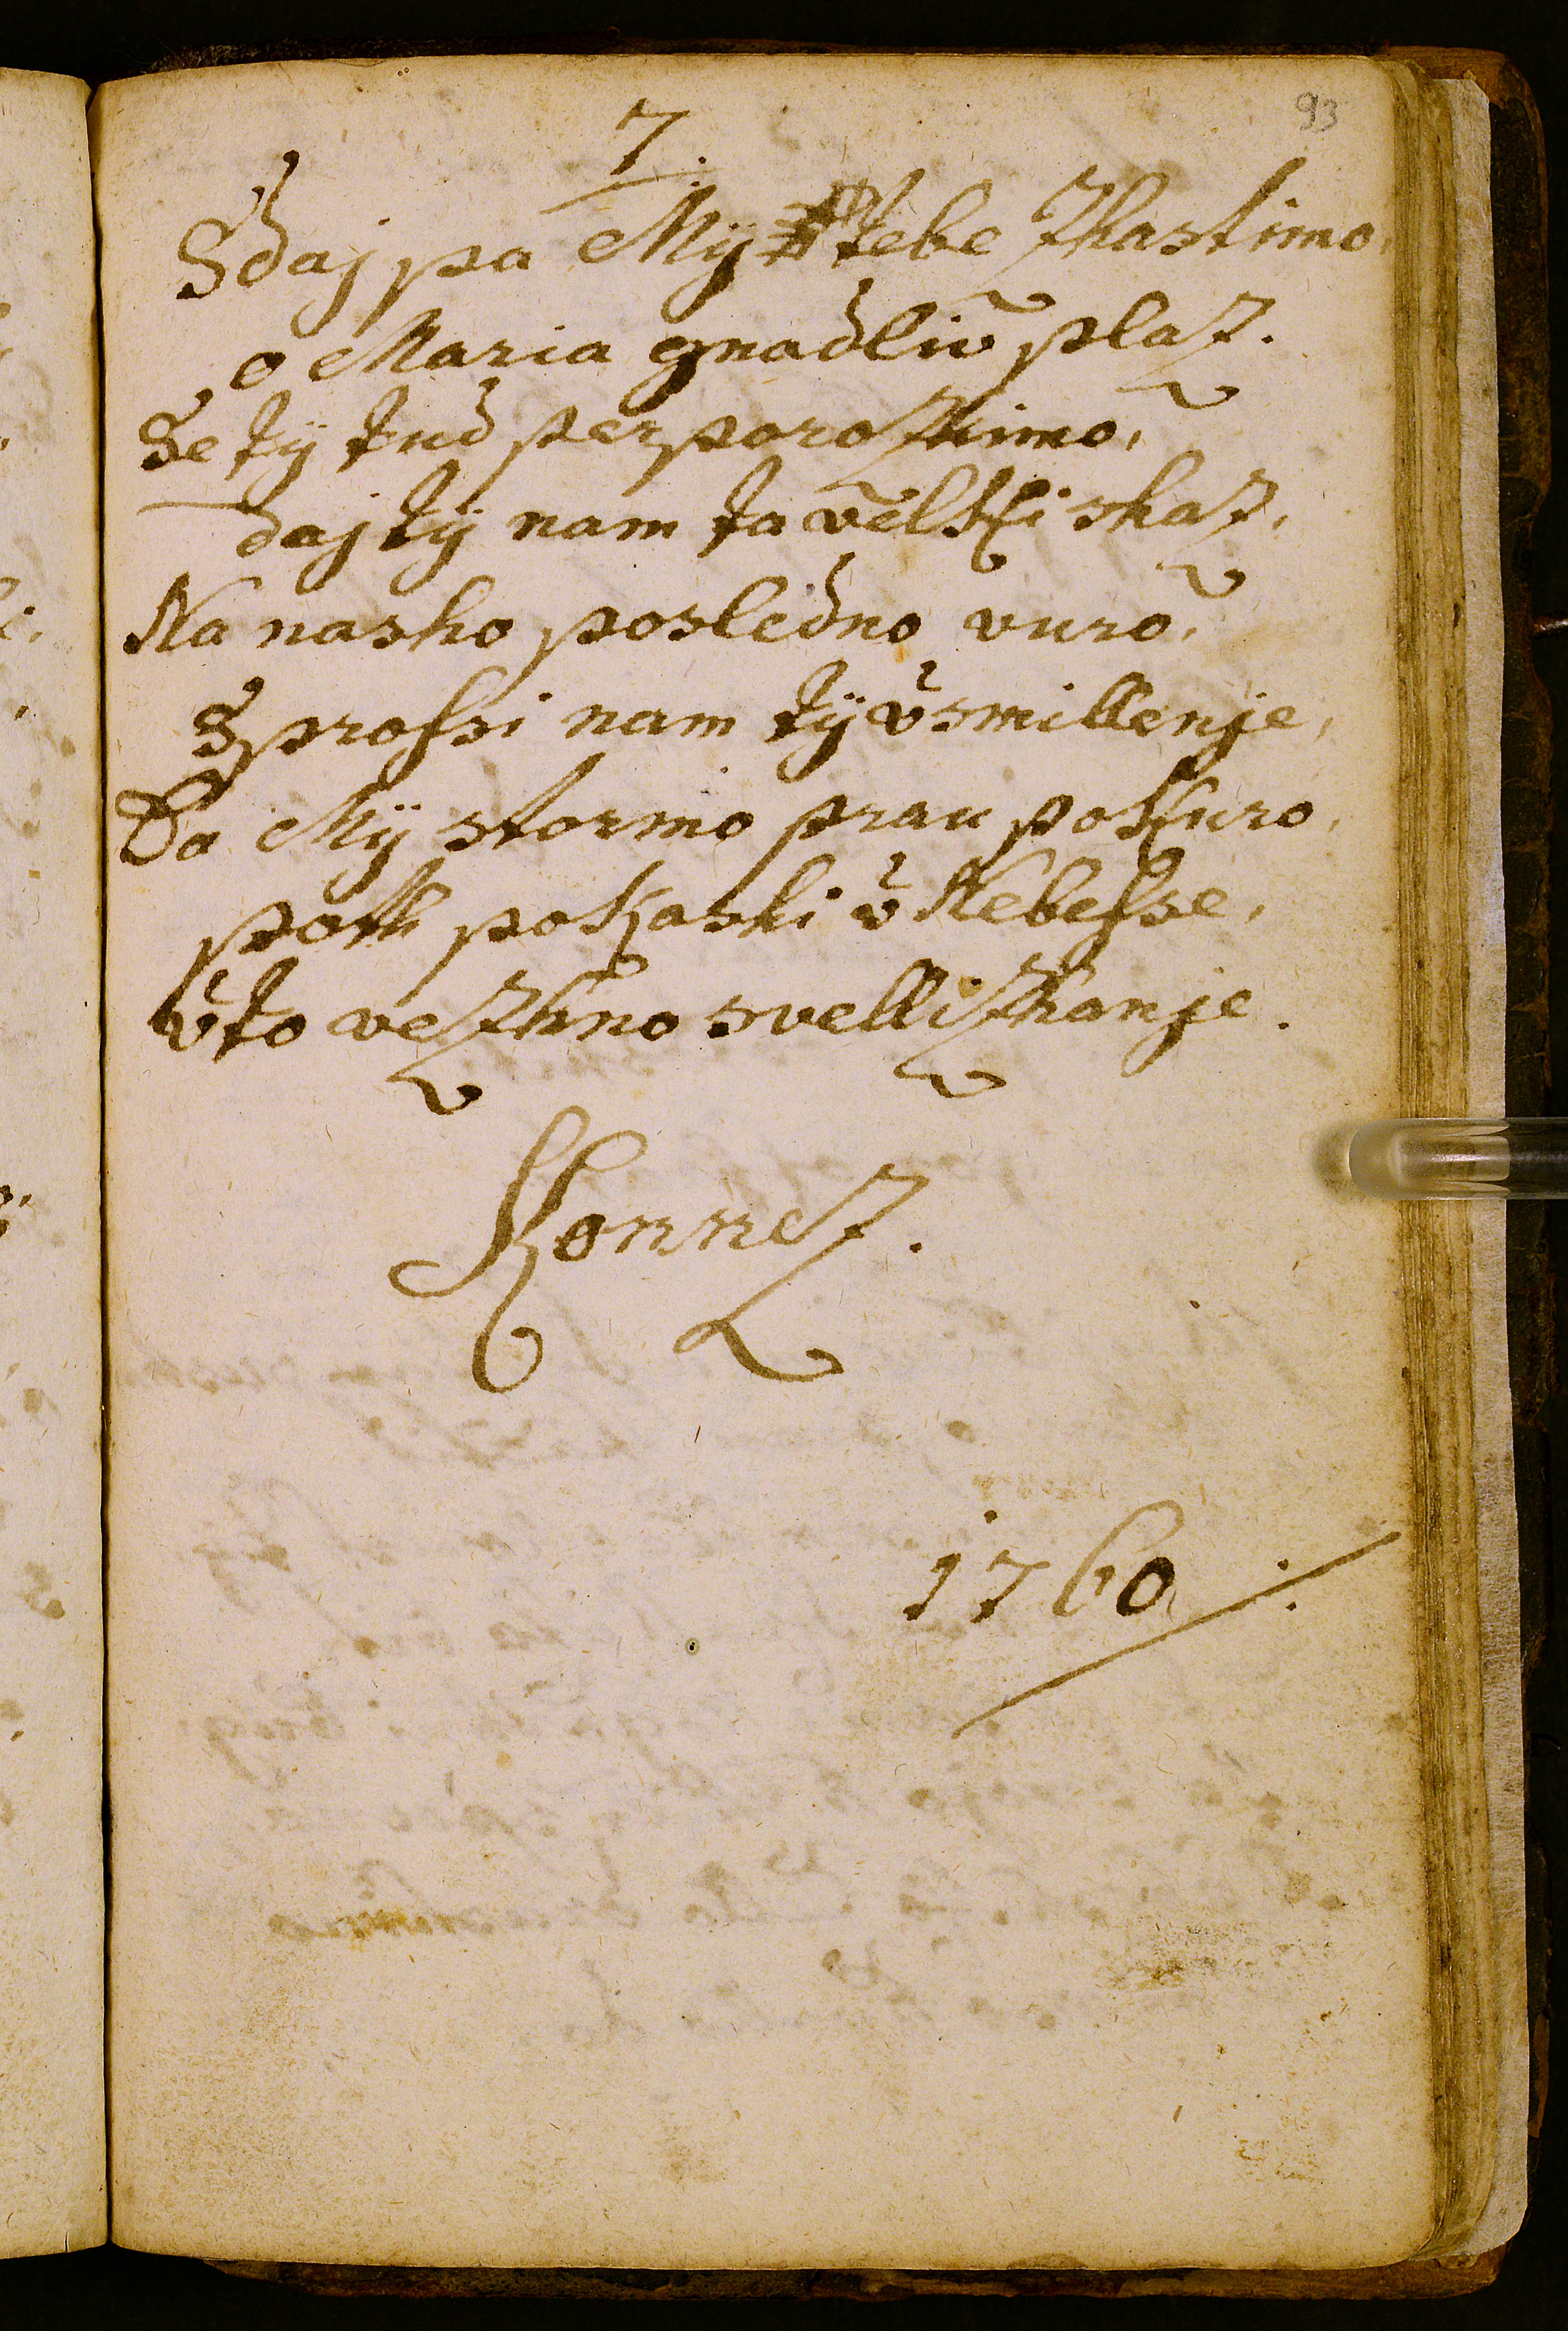 93
7.
Sdaj pa Mÿ Tebe zhastimo,
o Maria gnadliv̄ plaz.
Se tÿ tud perporozhimo,
daj tÿ nam ta velkki shaz,
Na nasho posledno vuro,
Sprossi nam tÿ v̄smillenje,
Da Mÿ stormo prau pokkuro,
poth pokashi v̄ Nebesse,
v̄ to vezhno svellizhanje.
Konnez.
1760